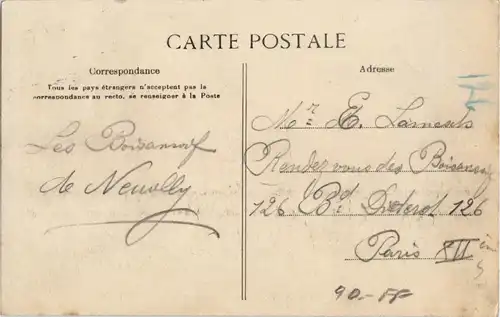 CARTE POSTALE
Correspondance
Tous les pays étrangers n'acceptent pas la
correspondance au recto, se renseigner à la Poste
Les Boisansoif
de Neuilly
Adresse
Mr E.
Rendez vous des Boisansoif
126 Bd Diderot 126
Paris XII ème
90-FF